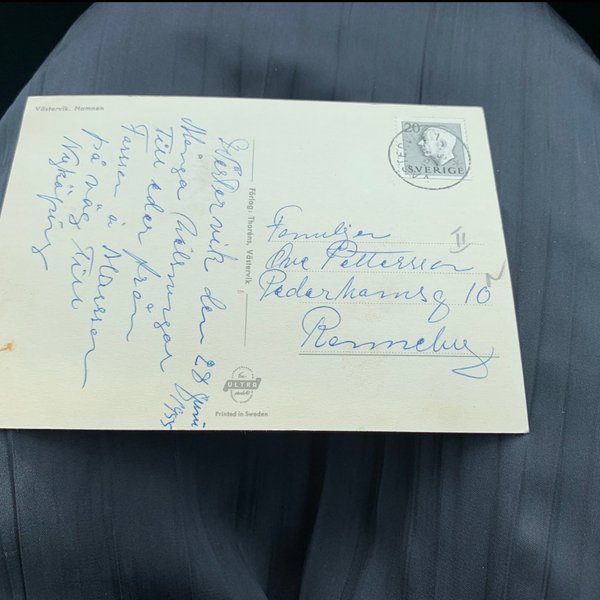 Västervik. Hamnen
Västervik den 28 Juni
1955
Många hälsningar
Till eder från
Farsan å Morsan
på väg Till
Nyköping
Förlag: Thoréns, Västervik
20
SVERIGE
Familjen
Ove Pettersson
II
10
Ronneby
ULTRA
Printed in Sweden